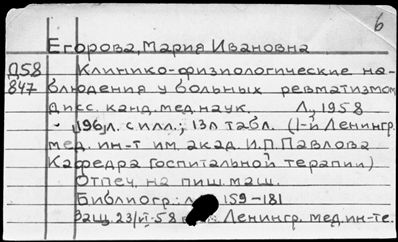 6
Егорова, Мария Ивановна
Д58 Клинико-физиологические на-
847 блюдения у больных ревматизмом
Дисс. канд. мед. наук. Л., 1958
196л. с илл.; 13л табл. (1-й Ленингр.
мед. ин-т им. акад. И.П. Павлова
Кафедра госпитальной терапии)
Отпеч. на пиш. маш.
Библиогр.: л. 159-181
Защ. 23/VI-58 Ленингр. мед. ин-те.